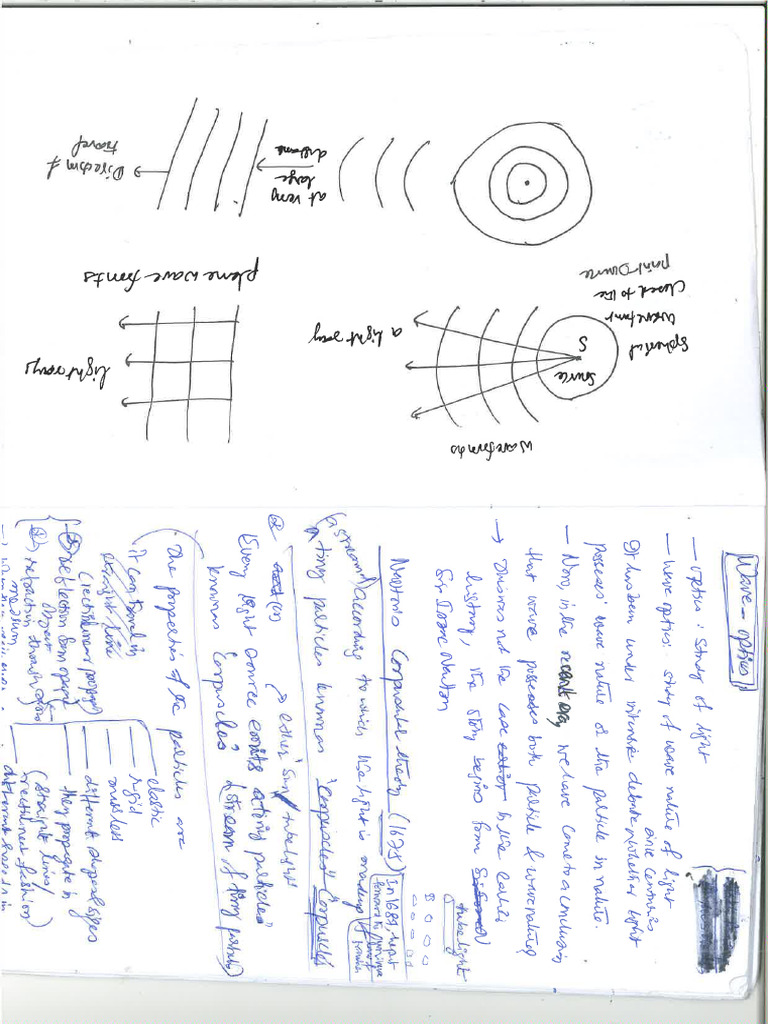 Wave-optics
- optics : Study of light
- wave optics: study of wave nature of light
It has been under intense debate whether light
since centuries
possess wave nature or the particle in nature.
- Now, in the recent era, we have come to a conclusion
that wave possesses both particle & wave nature
→ this was not the case in the earlier
history, the story begins from
Sir Isaac Newton
tubelight
Newton's Corpuscular theory (1675)
In 1689, kept
according to which the light is made up of
(a stream)
tiny particles known as 'Corpuscles' Corpuscles
either sun / tubelight
Every light source emits a tiny particles
known as "Corpuscles" (stream of tiny particles)
The properties of the particles are
elastic
rigid
massless
different shapes/sizes
they propagate in
(straight lines/
rectilinear fashion)
different speeds in
it can travel in
straight line
(rectilinear propagation)
reflection from opaque
object
refraction through
medium
Direction of
travel
at very
large
distance
plane wave fronts
light rays
a light ray
Source
S
Spherical
wavefront
closed to the
point source
wavefronts